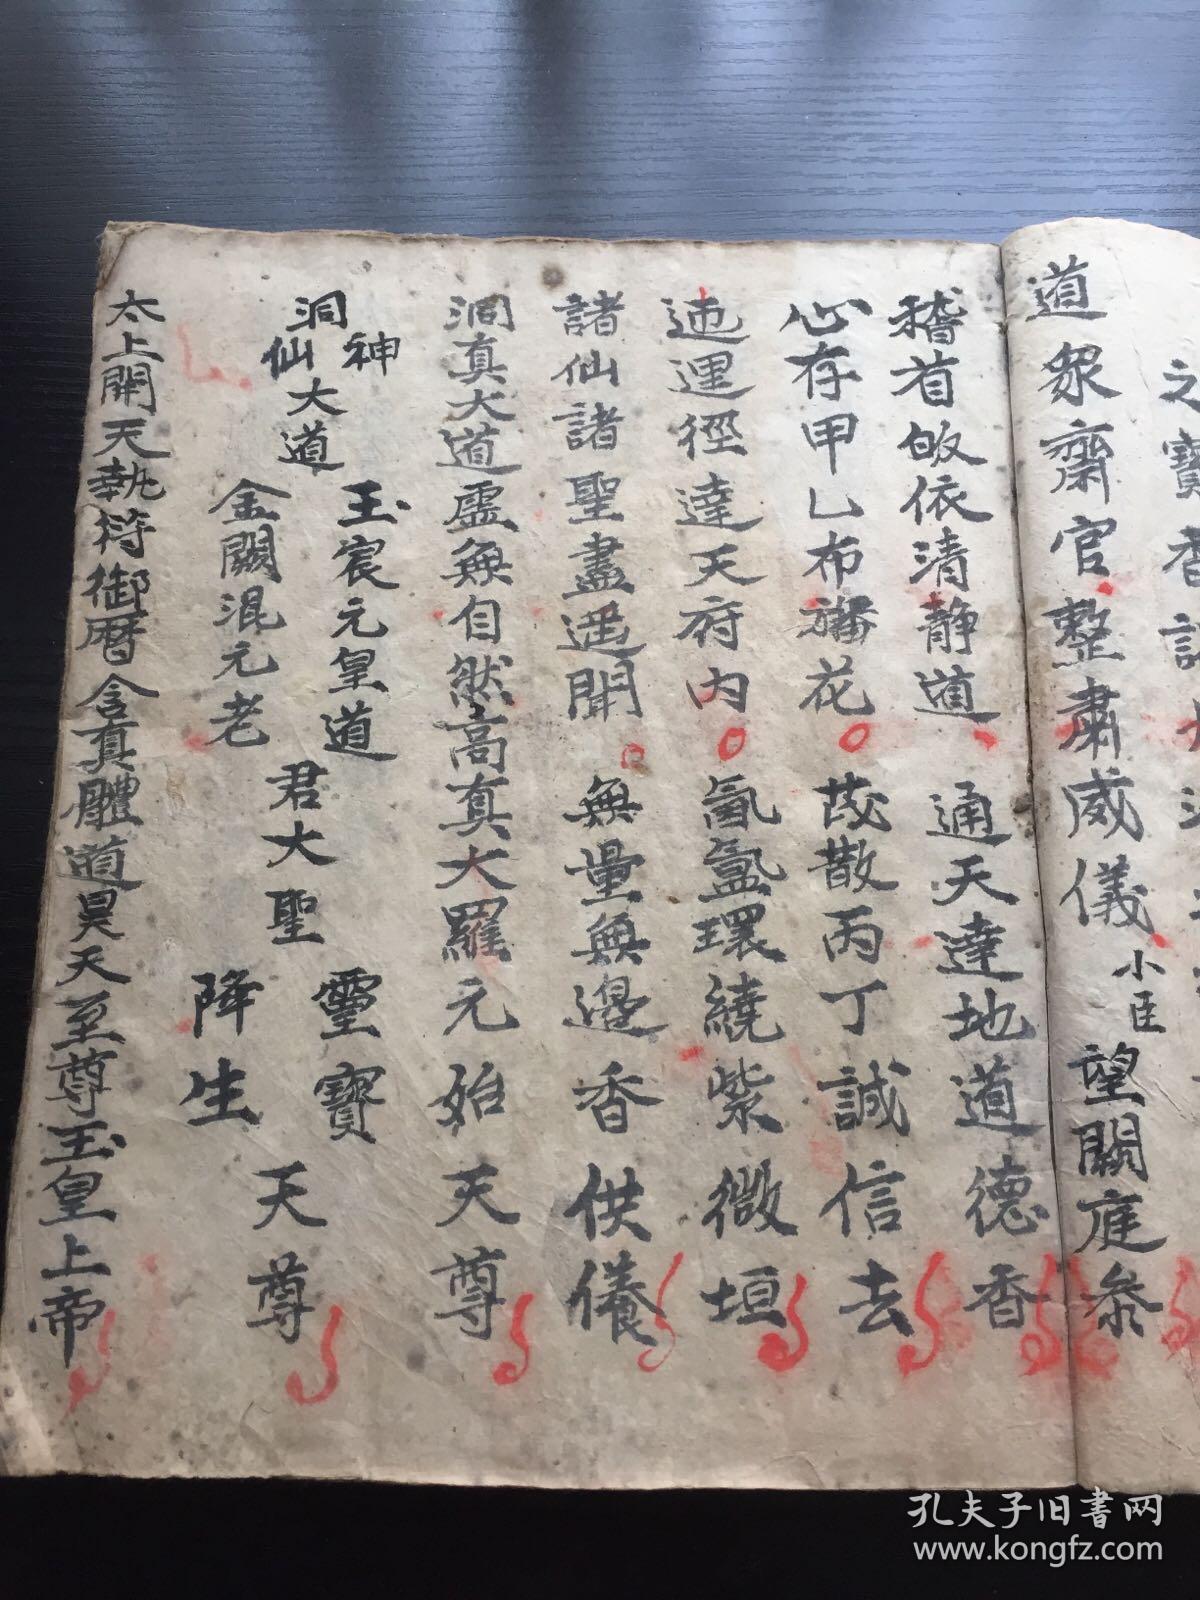 之寶香
道眾齋官整肅威儀小臣望闕庭叅
稽首皈依清静道通天達地道德香
心存甲乙布旛花茂散丙丁誠信去
迤逥徑達天府內氤氳環繞紫微垣
諸仙諸聖盡遥聞無量無邊香供養
洞真大道虛無自然高真大羅元始天尊
洞神仙大道玉宸元皇道金闕混元老君大聖靈寶降生天尊
太上開天執符御曆含真體道昊天至尊玉皇上帝
孔夫子旧书网
www.kongfz.com